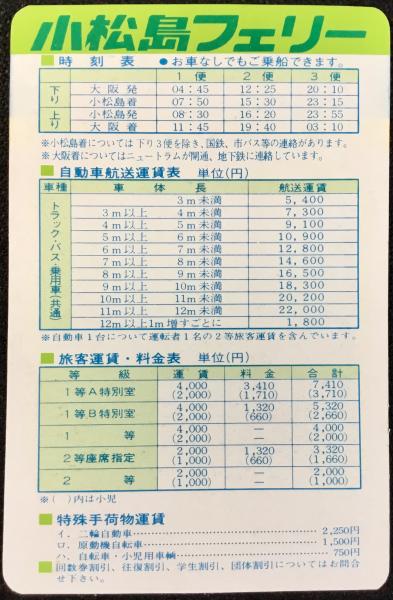 小松島フェリー
■時刻表 ●お車なしでもご乗船できます。
1便 2便 3便
下り 大阪発 04:45 12:25 20:10
小松島着 07:50 15:30 23:15
上り 小松島発 08:30 16:20 23:55
大阪着 11:45 19:40 03:10
※小松島着については下り3便を除き、国鉄、市バス等の連絡があります。
※大阪着についてはニュートラムが開通、地下鉄に連絡しています。
■自動車航送運賃表 単位(円)
車種 車体長 航送運賃
トラック・バス・乗用車(共通)
3m未満 5,400
3m以上 4m未満 7,300
4m以上 5m未満 9,100
5m以上 6m未満 10,900
6m以上 7m未満 12,800
7m以上 8m未満 14,600
8m以上 9m未満 16,500
9m以上 10m未満 18,300
10m以上 11m未満 20,200
11m以上 12m未満 22,000
12m以上1m増すごとに 1,800
※自動車1台について運転者1名の2等旅客運賃を含んでいます。
■旅客運賃・料金表 単位(円)
等級 運賃 料金 合計
1等A特別室 4,000 3,410 7,410
(2,000) (1,710) (3,710)
1等B特別室 4,000 1,320 5,320
(2,000) (660) (2,660)
1等 4,000 — 4,000
(2,000) — (2,000)
2等座席指定 2,000 1,320 3,320
(1,000) (660) (1,660)
2等 2,000 — 2,000
(1,000) — (1,000)
※( )内は小児
■特殊手荷物運賃
イ.二輪自動車 2,250円
ロ.原動機自転車 1,500円
ハ.自転車・小児用車輌 750円
■回数券割引、往復割引、学生割引、団体割引についてはお問合
せ下さい。